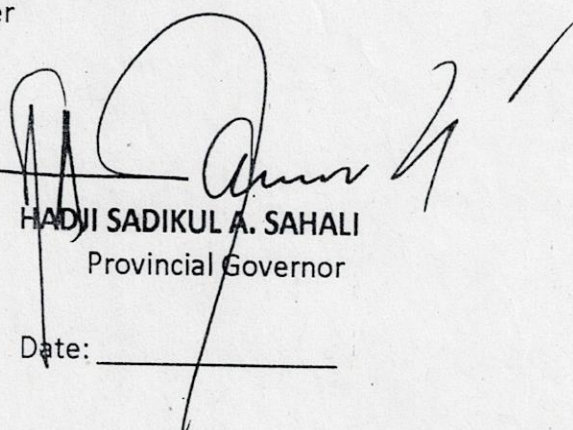 er
HADJI SADIKUL A. SAHALI
Provincial Governor
Date: